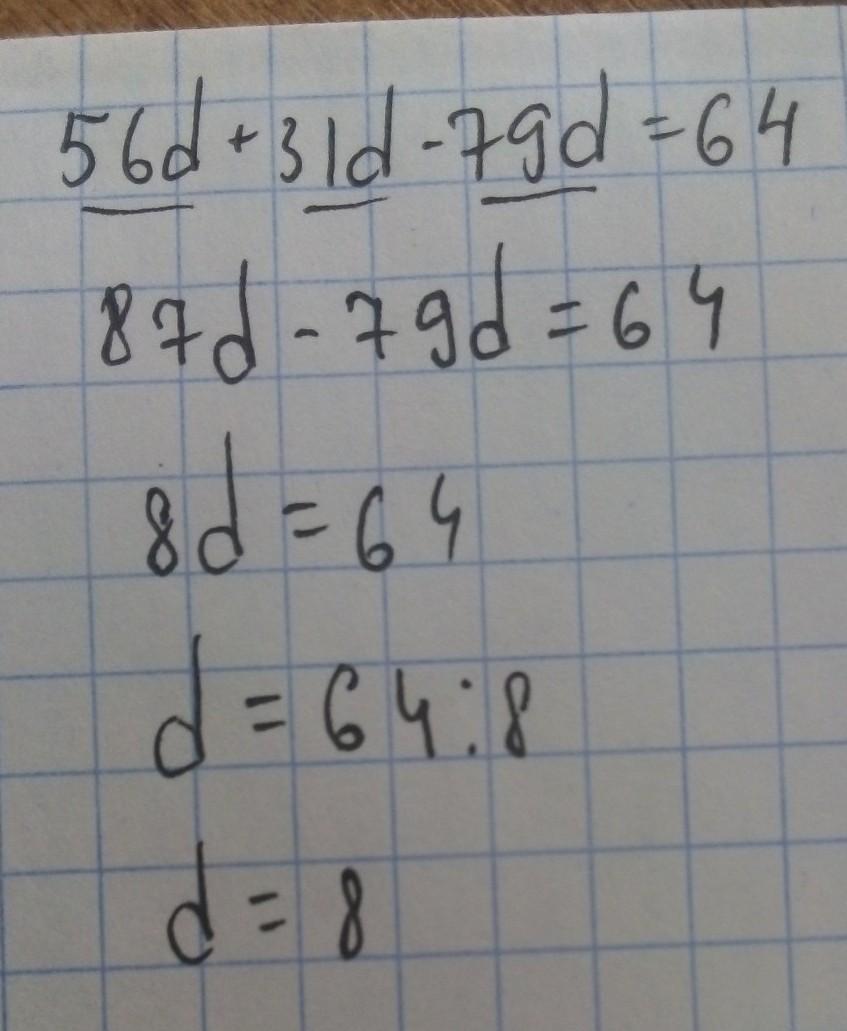 56d + 31d - 79d = 64
87d - 79d = 64
8d = 64
d = 64 : 8
d = 8